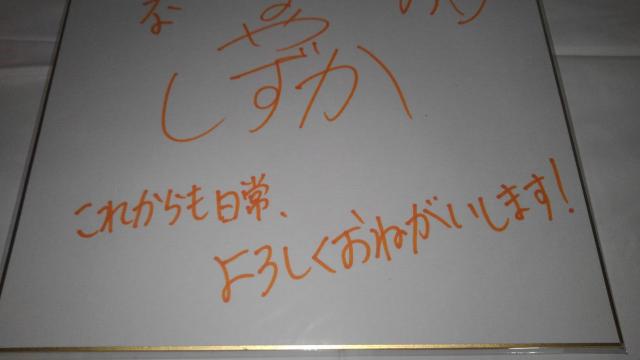 しずか
これからも日常、
よろしくおねがいします!